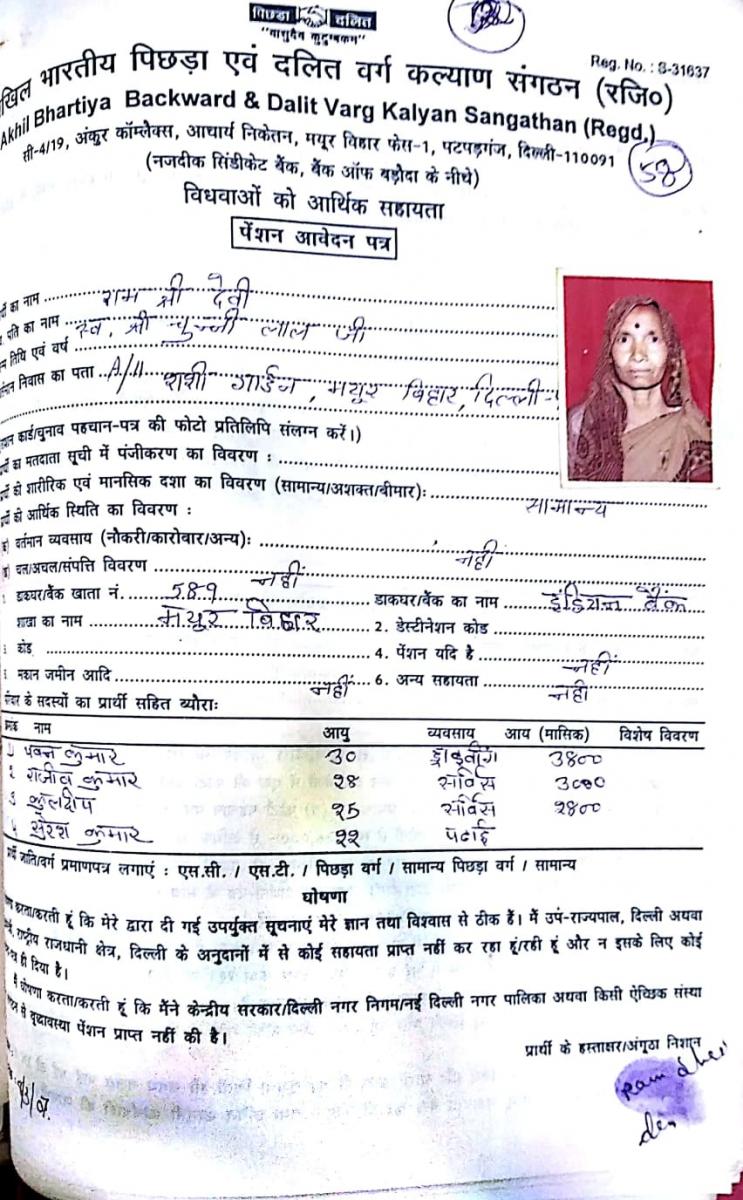 पिछड़ा दलित
"वासुदैव कुटुम्बकम"
Reg. No. : S-31637
खिल भारतीय पिछड़ा एवं दलित वर्ग कल्याण संगठन (रजि०)
Akhil Bhartiya Backward & Dalit Varg Kalyan Sangathan (Regd.)
सी-4/19, अंकुर कॉम्लैक्स, आचार्य निकेतन, मयूर विहार फेस-1, पटपड़गंज, दिल्ली-110091
(नजदीक सिंडीकेट बैंक, बैंक ऑफ बड़ौदा के नीचे)
58
विधवाओं को आर्थिक सहायता
पेंशन आवेदन पत्र
का नाम राम श्री देवी
पति का नाम स्व. श्री चुन्नी लाल जी
तिथि एवं वर्ष
निवास का पता A/11 शशी गार्डन, मयूर विहार, दिल्ली-
कार्ड/चुनाव पहचान-पत्र की फोटो प्रतिलिपि संलग्न करें।)
का मतदाता सूची में पंजीकरण का विवरण :
की शारीरिक एवं मानसिक दशा का विवरण (सामान्य/अशक्त/बीमार): सामान्य
की आर्थिक स्थिति का विवरण :
वर्तमान व्यवसाय (नौकरी/कारोबार/अन्य): नहीं
चल/अचल/संपत्ति विवरण नहीं
डाकघर/बैंक खाता नं. 589 डाकघर/बैंक का नाम इंडियन बैंक
शाखा का नाम मयूर विहार 2. डेस्टीनेशन कोड
कोड 4. पेंशन यदि है नहीं
मकान जमीन आदि नहीं 6. अन्य सहायता नहीं
के सदस्यों का प्रार्थी सहित ब्यौराः
नाम आयु व्यवसाय आय (मासिक) विशेष विवरण
1 पवन कुमार 30 ड्राइवींग 3800
2 राजीव कुमार 28 सर्विस 3000
3 कुलदीप 25 सर्विस 2800
4 सुरेश कुमार 22 पढाई
जाति/वर्ग प्रमाणपत्र लगाएं : एस.सी. / एस.टी. / पिछड़ा वर्ग / सामान्य पिछड़ा वर्ग / सामान्य
घोषणा
करता/करती हूं कि मेरे द्वारा दी गई उपर्युक्त सूचनाएं मेरे ज्ञान तथा विश्वास से ठीक हैं। मैं उप-राज्यपाल, दिल्ली अथवा
राष्ट्रीय राजधानी क्षेत्र, दिल्ली के अनुदानों में से कोई सहायता प्राप्त नहीं कर रहा हूं/रही हूं और न इसके लिए कोई
ही दिया है।
मैं घोषणा करता/करती हूं कि मैंने केन्द्रीय सरकार/दिल्ली नगर निगम/नई दिल्ली नगर पालिका अथवा किसी ऐच्छिक संस्था
से वृद्धावस्था पेंशन प्राप्त नहीं की है।
प्रार्थी के हस्ताक्षर/अंगूठा निशान